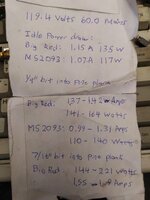 119.4 Volts 60.0
Idle Power draw:
Big Red: 1.15A 135W
MS2093: 1.07A 117W
1/4" bit into Pine plank
Big Red: Amps
141 - 164 Watts
MS2093: 0.99 - 1.31 Amps
110 - 140
7/16" bit into Pine plank
Big Red: 144 - 221 Watts
1.55 Amps